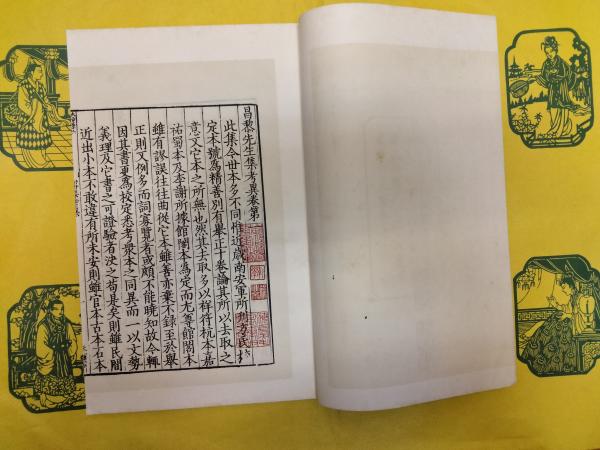 昌黎先生集考異卷第
此集今世本多不同惟近歲南安軍所刊方氏校
定本號為精善別有舉正十卷論其所以去取之
意又它本之所無也然其去取多以祥符杭本嘉
祐蜀本及李謝所據館閣本為定而尤尊館閣本
雖有謬誤往往曲從它本雖善亦棄不錄至於舉
正則又例多而詞寡覽者或頗不能曉知故今輒
因其書更為校定悉考衆本之同異而一以文勢
義理及它書之可證驗者決之苟是矣則雖民間
近出小本不敢違有所未安則雖官本古本石本